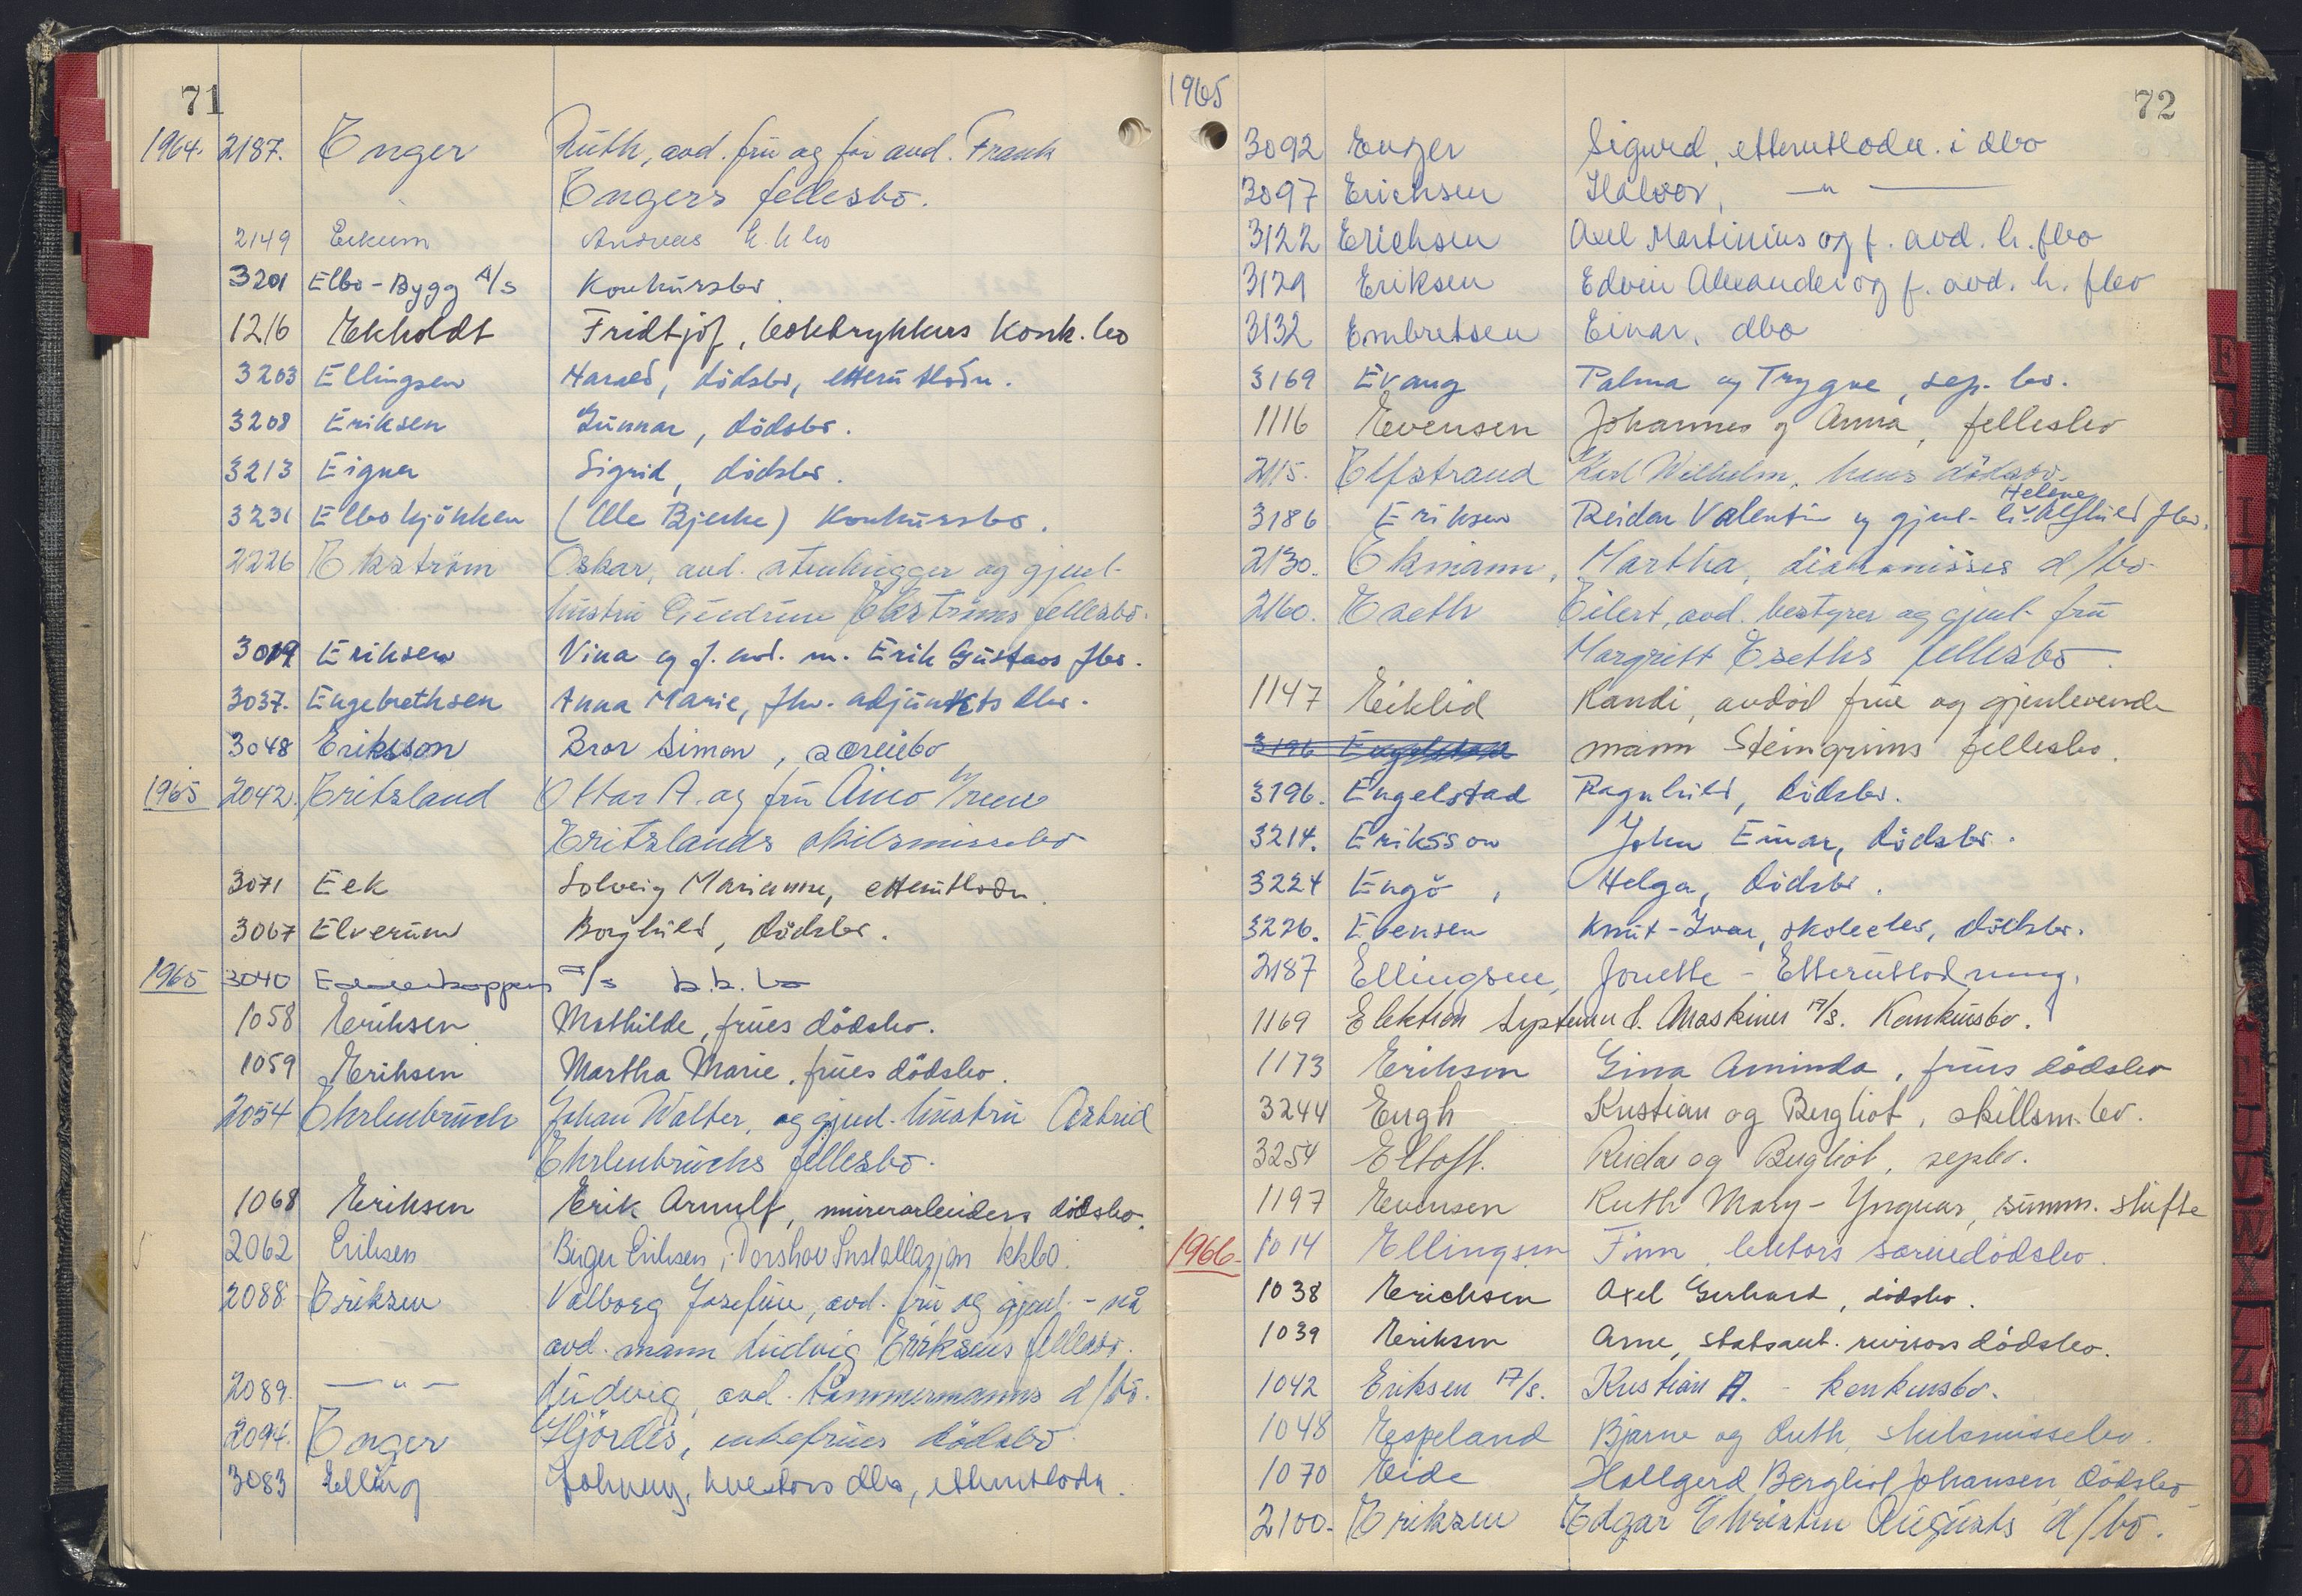 71
1964. 2187. Enger Ruth, avd. fru og før avd. Frank
Engers fellesbo.
2149 Eikum Andreas
3201 Elbo-Bygg A/S Konkursbo
1216 Ekholdt Fridtjof, boktrykkers konk.bo
3203 Ellingsen Harald, dödsbo, etterutlodn.
3208 Eriksen Gunnar, dödsbo.
3213 Eigner Sigrid, dödsbo.
3231 Elbo kjökken (Ole Bjerke) Konkursbo.
2226 Ekström Oskar, avd. stenhugger og gjenl.
hustru Gudrun Ekströms fellesbo.
3019 Eriksen Vina og f. avd. m. Erik Gustavs fbo.
3037. Engebrethsen Anna Marie, fhv. adjunkts dbo.
3048 Eriksson Bror Simon, særeiebo
1965 2042. Eritsland Ottar A. og fru Aino
Eritslands skilsmissebo
3071 Eek Solveig Marianne, etterutlodn.
3067 Elverum Borghild, dödsbo.
1965 3040 A/S k.k.bo
1058 Eriksen Mathilde, frues dödsbo.
1059 Eriksen Martha Marie, frues dödsbo.
2054 Ehrlenbruch Johan Walter, og gjenl. hustru Astrid
Ehrlenbruchs fellesbo.
1068 Eriksen Erik Arnulf, murerarbeiders dödsbo.
2062 Eriksen Birger Eriksen, Torshov Installasjon kkbo.
2088 Eriksen Valborg Josefine, avd. fru og gjenl. - nå
avd. mann Ludvig Eriksens fellesbo.
2089. — " — Ludvig, avd. tømmermanns d/bo.
2094. Enger Hjördis, enkefrues dödsbo
3083 Elling Johnny, dbo, etterutlodn.
1965
72
3092 Enger Sigurd, etterutlodn. i dbo
3097 Erichsen Halvor, — " —
3122 Erichsen Axel Martinius og f. avd. h. fbo
3129 Eriksen Edvin Alexander og f. avd. h. fbo
3132 Embretsen Einar, dbo
3169 Evang Palma og Trygve, sep. bo.
1116 Evensen Johannes og Anna, fellesbo
2115. Elfstrand Karl Wilhelm, hans dödsbo.
Helene
3186 Eriksen Reidar Valentin og gjenl. h. Alfhild fbo.
2130. Ekmann, Martha, diakonisses d/bo
2160. Eseth Eilert, avd. bestyrer og gjenl. fru
Margritt Eseths fellesbo.
1147 Eiklid Randi, avdöd frue og gjenlevende
3196 Engelstad mann Steingrims fellesbo.
3196. Engelstad Ragnhild, dödsbo.
3214. Eriksson John Einar, dödsbo.
3224 Engö, Helga, dödsbo.
3226. Evensen Knut-Ivar, skoleelev, dödsbo.
2187 Ellingsen, Jonette - Etterutlodning.
1169 Elektron Maskiner A/S. Konkursbo.
1173 Eriksen Gina Aminda, frues dödsbo
3244 Engh Kristian og Bergliot, skillsm.bo.
3254 Eltoft. Reidar og Bergliot, sepbo.
1197 Evensen Ruth Mary - Yngvar, summ. skifte
1966- 1014 Ellingsen Finn, lektors særeiedödsbo.
1038 Erichsen Axel Gerhard, dödsbo.
1039 Eriksen Arne, statsaut. revisors dödsbo.
1042 Eriksen A/S. Kristian A. - konkursbo.
1048 Espeland Bjarne og Ruth, skilsmissebo.
1070 Eide Hallgerd Bergliot Johansen, dödsbo
2100- Eriksen Edgar Christian Augusts d/bo.
E
F
T
V
W
X
Z
Æ
Ø